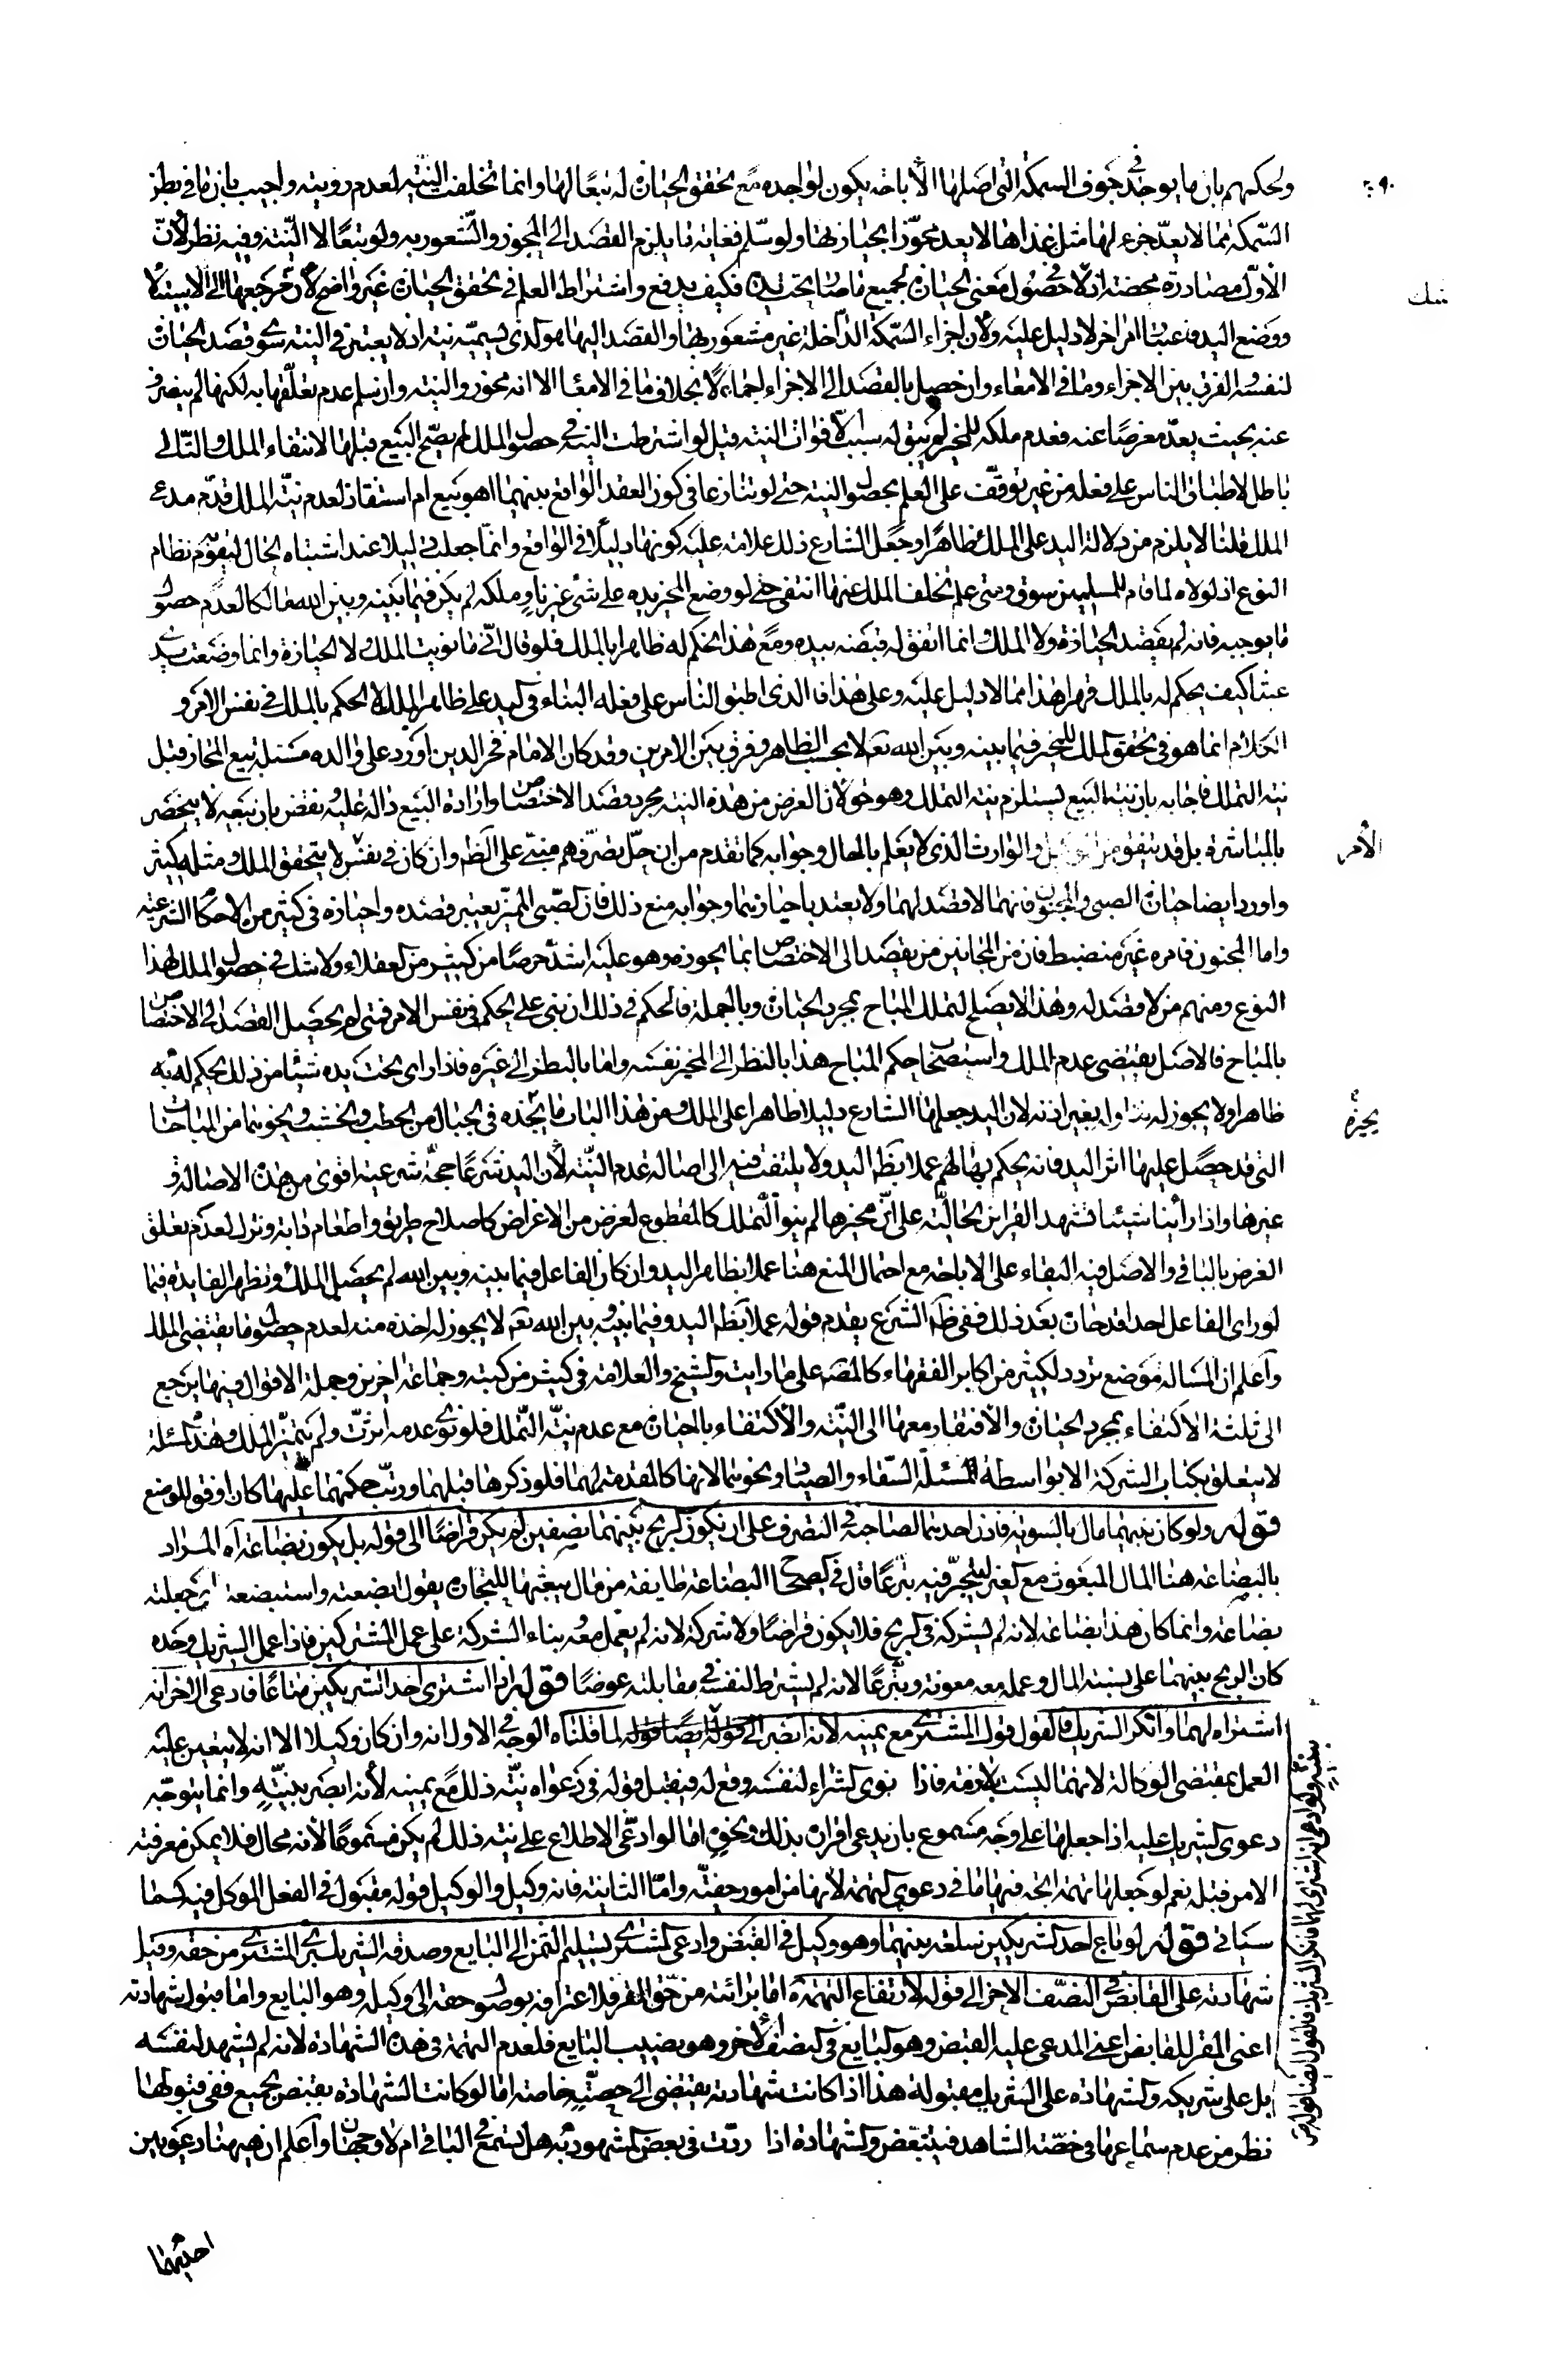 ولحكمهم بان ما يوجد في جوف السمكة التي اصلها الاباحة يكون لواجده مع تحقق الحيازة له تبعا لها وانما تخلفت النية لعدم رويته واجيب بان ما في بطن
السمكة مما لا يعد جزء لها مثل غذاها لا يعد محوزا بحيازتها ولو سلم فغايته ما يلزم القصد الى المحوز والشعور به ولو تبعا لا النية وفيه نظر لان
الاول مصادرة محضة اذ لا في حصول معنى الحيازة لجميع ما صار تحت يده فكيف يدفع واشتراط العلم في تحقق الحيازة غير واضح لان مرجعها الى الاستيلا
ووضع اليد فاعتبار امر اخر لا دليل عليه ولان اجزاء السمكة الداخلة غير مشعور بها والقصد اليها هو الذي يسميه نية اذ لا يعتبر في النية سوى قصد الحيازة
لنفسه والفرق بين الاجزاء وما في الامعاء وان حصل بالقصد الى الاجزاء اجمالا بخلاف ما في الامعا الا انه محوز والنية وان سلم عدم تعلقها به لكنها لم ينصرف
عنه بحيث يعد معرضا عنه فعدم ملكه للمحيز لم يبق له سبب الا فوات النية قيل لو اشترطت النية في حصول الملك لم يصح البيع قبلها لانتفاء الملك والتالي
باطل لاطباق الناس على فعله من غير توقف على العلم بحصول النية حتى لو تنازعا في كون العقد الواقع بينهما اهو بيع ام استنقاذ لعدم نية الملك قدم مدعي
الملك قلنا لا يلزم من دلالة اليد على الملك ظاهرا وجعل الشارع ذلك علامة عليه كونها دليلا في الواقع وانما جعلت دليلا عند اشتباه الحال ليقوم نظام
النوع اذ لولاه لما قام للمسلمين سوق ومتى علم تخلف الملك عنها انتفى حتى لو وضع المحيز يده على شئ غير ناو ملكه لم يكن فيما بينه وبين الله مالكا لعدم حصول
ما يوجبه فانه لم يقصد الحيازة ولا الملك وانما اتفق له قبضه بيده ومع هذا يحكم له ظاهرا بالملك فلو قال اني ما نويت الملك ولا الحيازة وانما وضعت يدي
عبثا كيف يحكم له بالملك قهرا هذا مما لا دليل عليه وعلى هذا فالذي اطبق الناس على فعله البناء في اليد على ظاهر الملك لا الحكم بالملك في نفس الامر و
الكلام انما هو في تحقق الملك للمحيز فيما بينه وبين الله تعالى لا بحسب الظاهر وفرق بين الامرين وقد كان الامام فخر الدين اورد على والده مسئلة بيع المحاز قبل
نية التملك فاجابه بان نية البيع يستلزم نية التملك وهو حق لان الغرض من هذه النية مجرد قصد الاختصاص وارادة البيع دالة عليه ونقض بان بيعه لا ينحصر
بالمباشرة بل قد يتفق من الوكيل والوارث الذي لا يعلم بالحال وجوابه كما تقدم من ان حل تصرفهم مبني على الظاهر وان كان في نفس لا يتحقق الملك ومثله كثير
واورد ايضا حيازة الصبي والمجنون فانهما لا قصد لهما ولا يعتد باحيازتهما وجوابه منع ذلك فان الصبي المميز يعتبر قصده واحيازه في كثير من الاحكام الشرعية
واما المجنون فامره غير منضبط فان من المجانين من يقصد الى الاختصاص بما يحوزه وهو عليه اشد حرصا من كثير من العقلاء ولا شك في حصول الملك لهذا
النوع ومنهم من لا قصد له وهذا لا يصلح لتملك المباح بمجرد الحيازة وبالجملة فالحكم في ذلك ان يبنى على الحكم في نفس الامر فمتى لم يحصل القصد الى الاختصاص
بالمباح فالاصل يقتضي عدم الملك واستصحاب حكم المباح هذا بالنظر الى المحيز نفسه واما بالنظر الى غيره فاذا راى تحت يده شيئا من ذلك يحكم له به
ظاهرا ولا يجوز له تناوله بغير اذنه لان اليد جعلها الشارع دليلا ظاهرا على الملك ومن هذا الباب ما يتخذه في الجبال من الحطب والخشب ونحوهما من المباحات
التي قد حصل عليها اثر اليد فانه يحكم بها لهم عملا بظاهر اليد ولا يلتفت فيه الى اصالة عدم النية لان اليد شرعا حجة شرعية اقوى من هذه الاصالة و
غيرها واذا رأينا شيئا تشهد القراين الحالية على ان محيزها لم ينو التملك كالمقطوع لغرض من الاغراض كاصلاح طريق واطعام دابة وترك لعدم تعلق
الغرض بالباقي والاصل فيه البقاء على الاباحة مع احتمال المنع هنا عملا بظاهر اليد وان كان الفاعل فيما بينه وبين الله لم يحصل الملك وتظهر الفايدة فيما
لو راى الفاعل احدا قد حازه بعد ذلك ففي ظاهر الشرع يقدم قوله عملا بظاهر اليد وفيما بينه وبين الله تعالى لا يجوز له اخذه منه لعدم حصول ما يقتضي الملك
واعلم ان المسالة موضع تردد لكثير من اكابر الفقهاء كالمص على ما رايت والشيخ والعلامة في كثير من كتبه وجماعة اخرين وجملة الاقوال فيها يرجع
الى ثلثة الاكتفاء بمجرد الحيازة والافتقار معها الى النية والاكتفاء بالحيازة مع عدم نية التملك فلو نوى عدمه اثرت ولم يتميز الملك وهذه المسئلة
لا يتعلق بكتاب الشركة الا بواسطة مسئلة السقاء والصياد ونحوهما لانها كالمقدمة لهما فلو ذكرها قبلهما ورتب حكمهما عليها كان اوفق للوضع
قوله ولو كان بينهما مال بالسوية فاذن احدهما لصاحبه في التصرف على ان يكون الربح بينهما نصفين لم يكن قراضا الى قوله بل يكون بضاعة اه المراد
بالبضاعة هنا المال المبعوث مع الغير ليتجر فيه تبرعا قال في الصحاح البضاعة طايفة من مال يبعثها للتجارة يقول ابضعته واستبضعته اي جعلته
بضاعة وانما كان هذا بضاعة لانه لم يشركه في الربح فلا يكون قراضا ولا شركة لانه لم يعمل معه بناء الشركة على عمل المشتركين فاذا عمل الشريك وحده
كان الربح بينهما على نسبة المال وعمله معه معونة وتبرعا لانه لم يشترط لنفسه في مقابلته عوضا قوله اذا اشترى احد الشريكين متاعا فادعى الاخر انه
اشتراه لهما وانكر الشريك فالقول قول المشتري مع يمينه لانه ابصر الى قوله ايضا قوله لما قلناه الوجه في الاول انه وان كان وكيلا الا انه لا يتعين عليه
العمل بمقتضى الوكالة لانها ليست لازمة فاذا نوى الشراء لنفسه وقع له فيقبل قوله في دعواه نية ذلك مع يمينه لانه ابصر بنيته وانما يتوجه
دعوى الشريك عليه اذا جعلها على وجه مسموع بان يدعي اقراره بذلك ونحوه اما لو ادعى الاطلاع على نيته ذلك لم يكن مسموعا لانه محال فلا يمكن معرفته
الا من قبله نعم لو جعلها تهمة اتجه فيها ما في دعوى التهمة لانها من امور خفية واما الثانية فانه وكيل والوكيل قوله مقبول في الفعل الموكل فيه كما
سياتي قوله لو باع احد الشريكين سلعة بينهما وهو وكيل في القبض وادعى المشتري تسليم الثمن الى البايع وصدقه الشريك برئ المشتري من حقه وقبل
شهادته على القابض في النصف الاخر الى قوله لارتفاع التهمة اما برائته من حق المقر فلاعترافه بوصول حقه الى وكيله وهو البايع واما قبول شهادته
اعني المقر للقابض اعني المدعى عليه القبض وهو البايع في النصف الاخر وهو نصيب البايع فلعدم التهمة في هذه الشهادة لانه لم يشهد لنفسه
بل على شريكه والشهادة على الشريك مقبولة هذا اذا كانت شهادته يقتضي الى حصته خاصة اما لو كانت الشهادة بقبض الجميع ففي قبولها
نظر من عدم سماعها في حصته الشاهد فيتبعض والشهادة اذا ردت في بعض المشهود به هل تسمع في الباقي ام لا وجهان واعلم ان هيهنا دعويين
احديهما
الامر
يحيزه
بيمينه ولو ادعى انه اشترى لهما فانكر الشريك فالقول ايضا قوله